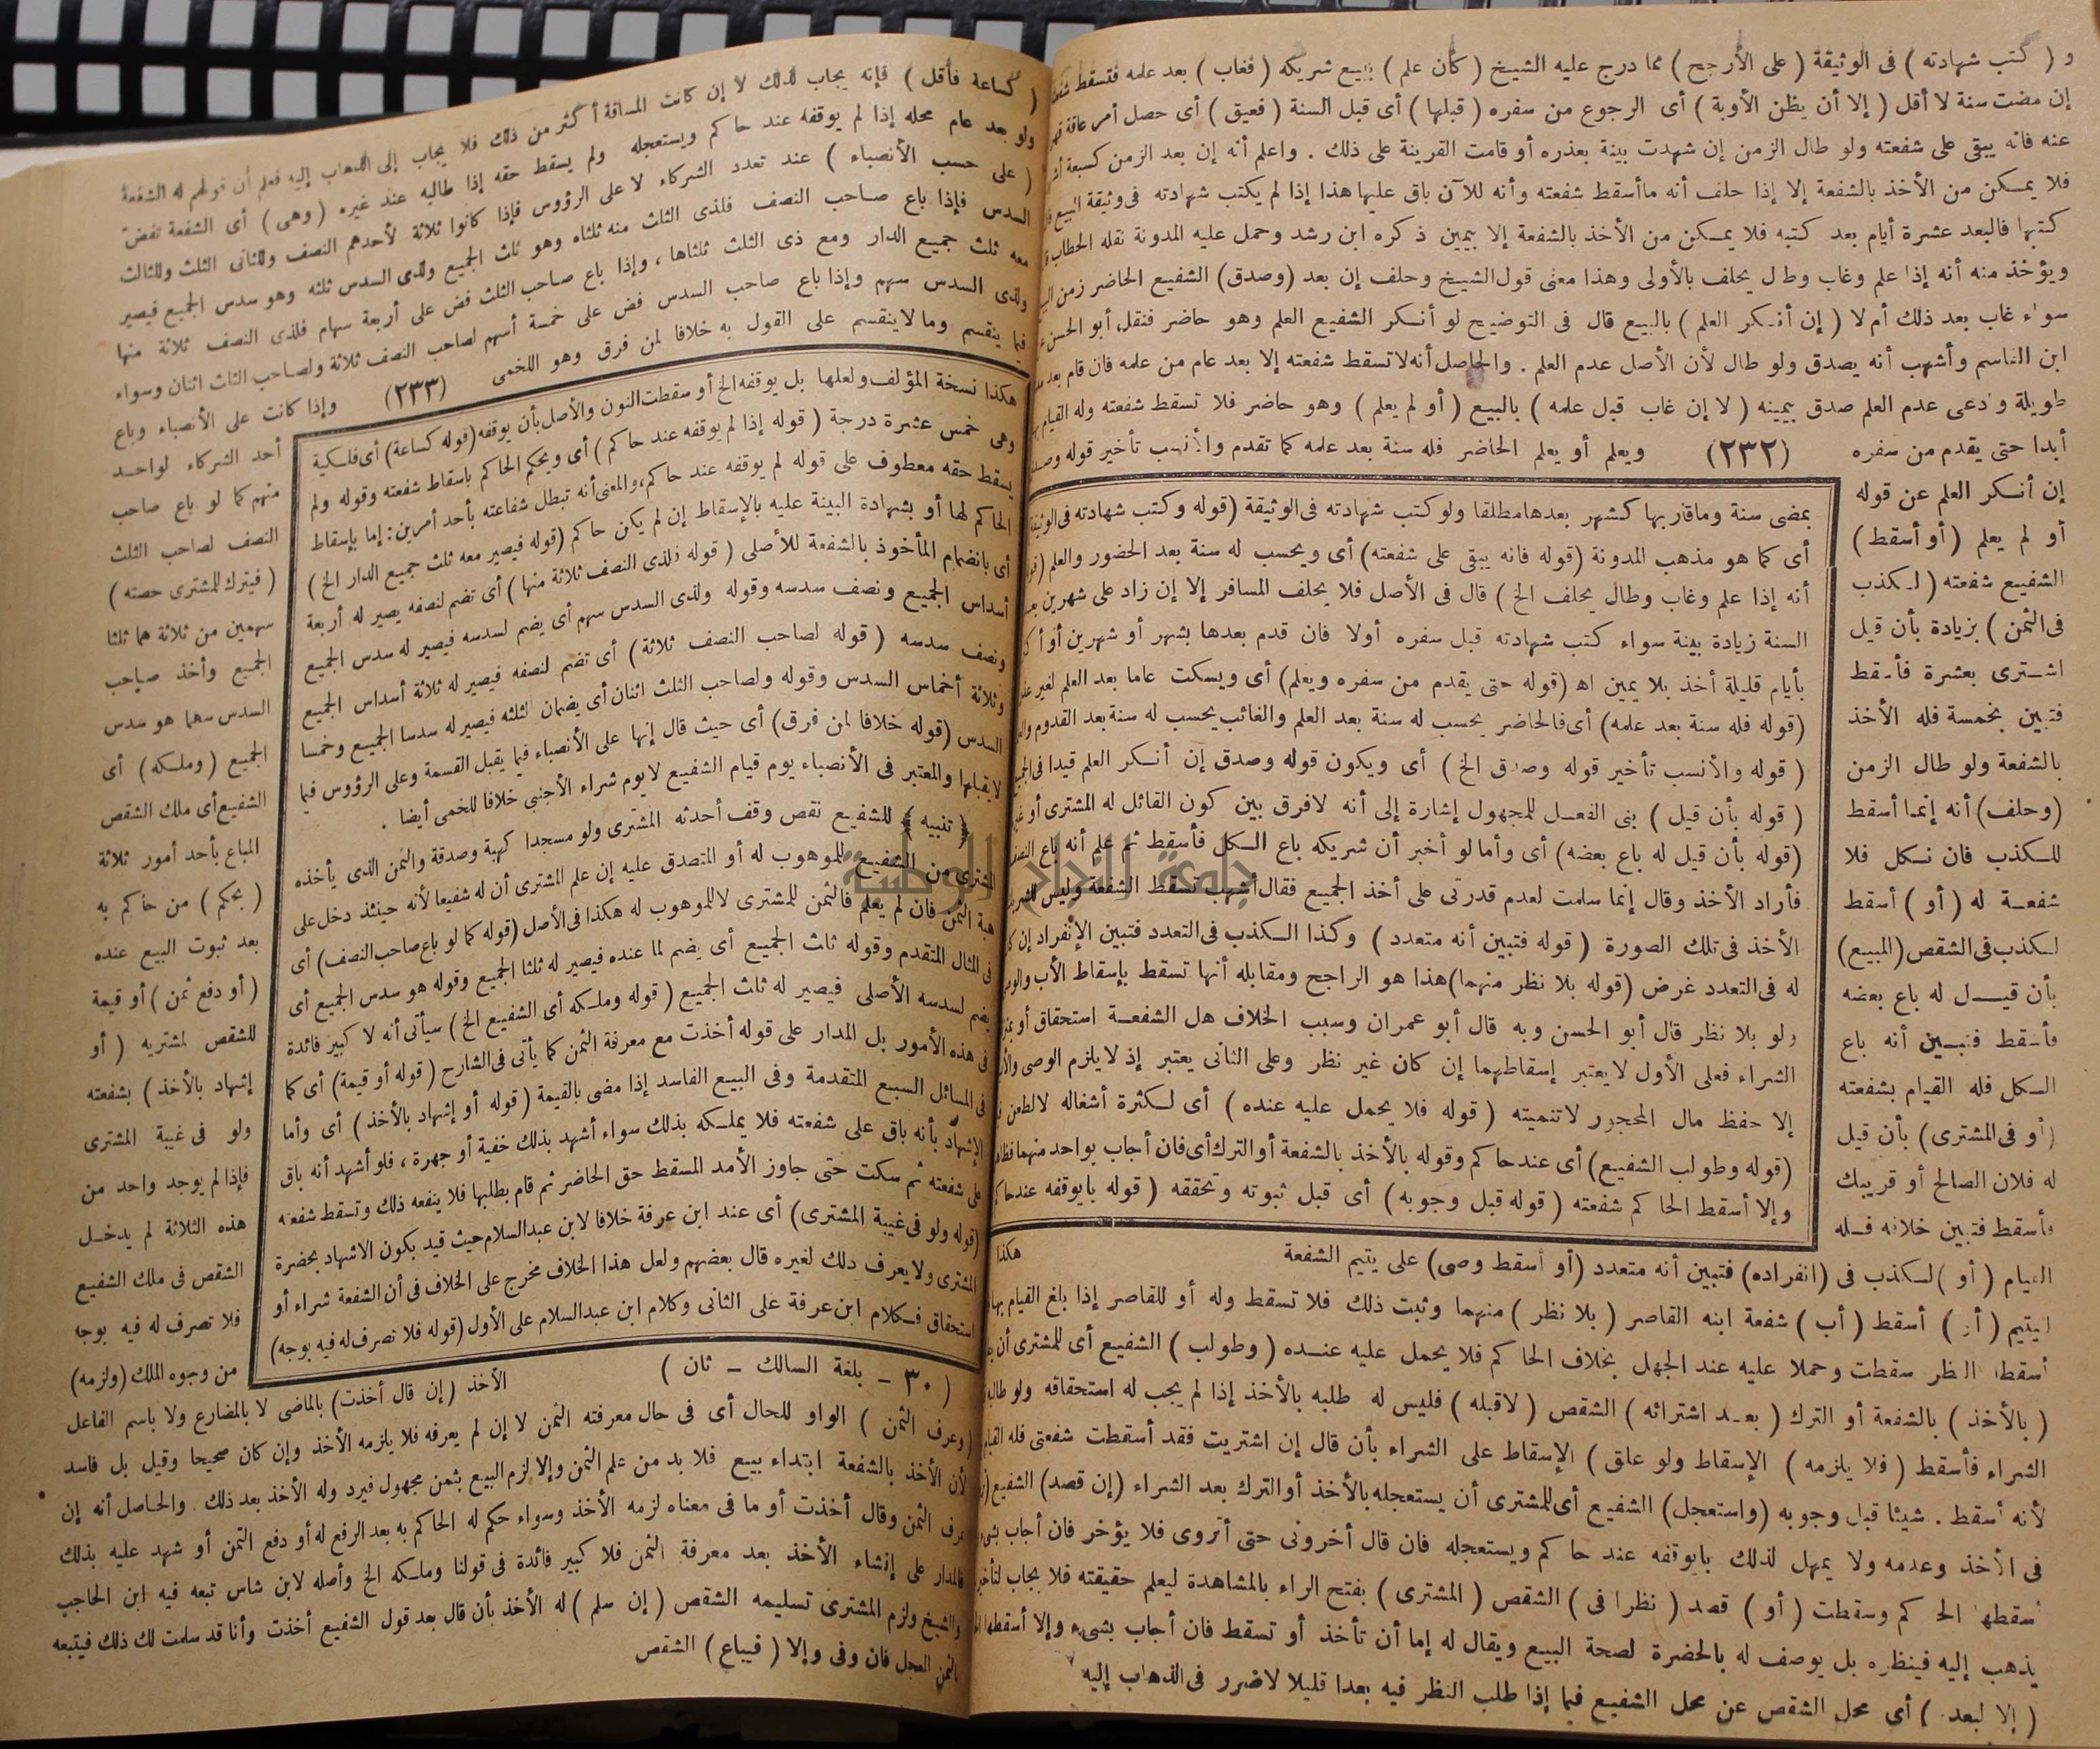 و ( كتب شهادته ) فى الوثيقة ( على الأرجح ) مما درج عليه الشيخ ( كأن علم ) ببيع شريكه ( فغاب ) بعد علمه فتسقط شفعته
إن مضت سنة لا أقل ( إلا أن يظن الأوبة ) أى الرجوع من سفره ( قبلها ) أى قبل السنة ( فعيق ) أى حصل أمر عاقة
عنه فانه يبقى على شفعته ولو طال الزمن إن شهدت بينة بعذره أو قامت القرينة على ذلك . واعلم أنه إن بعد الزمن كسبعة
فلا يمكن من الأخذ بالشفعة إلا إذا حلف أنه ما أسقط شفعته وأنه للآن باق عليها هذا إذا لم يكتب شهادته فى وثيقة البيع
كتبها فالبعد عشرة أيام بعد كتبه فلا يمكن من الأخذ بالشفعة إلا بيمين ذكره ابن رشد وحمل عليه المدونة نقله الحطاب
ويؤخذ منه أنه إذا علم وغاب وطال يحلف بالأولى وهذا معنى قول الشيخ وحلف إن بعد (وصدق) الشفيع الحاضر زمن
سواء غاب بعد ذلك أم لا ( إن أنكر العلم ) بالبيع قال فى التوضيح لو أنكر الشفيع العلم وهو حاضر فنقل أبو الحسن
ابن القاسم وأشهب أنه يصدق ولو طال لأن الأصل عدم العلم . والحاصل أنه لا تسقط شفعته إلا بعد عام من علمه فان قام بعد
طويلة وادعى عدم العلم صدق بيمينه ( لا إن غاب قبل علمه ) بالبيع ( أو لم يعلم ) وهو حاضر فلا تسقط شفعته وله القيام
أبدا حتى يقدم من سفره (٢٣٢) ويعلم أو يعلم الحاضر فله سنة بعد علمه كما تقدم والأنسب تأخير قوله
إن أنكر العلم عن قوله
أو لم يعلم (أو أسقط)
الشفيع شفعته ( لكذب
فى الثمن ) بزيادة بأن قيل
اشترى بعشرة فأسقط
فتبين بخمسة فله الأخذ
بالشفعة ولو طال الزمن
(وحلف) أنه إنما أسقط
للكذب فان نكل فلا
شفعة له ( أو ) أسقط
لكذب فى الشقص (المبيع)
بأن قيل له باع بعضه
فأسقط فتبين أنه باع
الكل فله القيام بشفعته
( أو فى المشترى ) بأن قيل
له فلان الصالح أو قريبك
فأسقط فتبين خلافه فله
بمضى سنة وما قاربها كشهر بعدها مطلقا ولو كتب شهادته فى الوثيقة (قوله وكتب شهادته فى
أى كما هو مذهب المدونة (قوله فانه يبقى على شفعته) أى ويحسب له سنة بعد الحضور والعلم
أنه إذا علم وغاب وطال يحلف الخ ) قال فى الأصل فلا يحلف المسافر إلا إن زاد على شهرين
السنة زيادة بينة سواء كتب شهادته قبل سفره أولا فان قدم بعدها بشهر أو شهرين
بأيام قليلة أخذ بلا يمين اه (قوله حتى يقدم من سفره ويعلم) أى ويسكت عاما بعد العلم لغير
(قوله فله سنة بعد علمه) أى فالحاضر يحسب له سنة بعد العلم والغائب يحسب له سنة بعد القدوم
( قوله والأنسب تأخير قوله وصدق الخ ) أى ويكون قوله وصدق إن أنكر العلم قيدا فى
( قوله بأن قيل ) بنى الفعل للمجهول إشارة إلى أنه لا فرق بين كون القائل له المشترى أو
(قوله بأن قيل له باع بعضه) أى وأما لو أخبر أن شريكه باع الكل فأسقط ثم علم أنه باع النصف
فأراد الأخذ وقال إنما سلمت لعدم قدرتى على أخذ الجميع فقال أشهب تسقط الشفعة وليس
الأخذ فى تلك الصورة ( قوله فتبين أنه متعدد ) وكذا الكذب فى التعدد فتبين الإنفراد إن
له فى التعدد غرض (قوله بلا نظر منهما) هذا هو الراجح ومقابله أنها تسقط بإسقاط الأب
ولو بلا نظر قال أبو الحسن وبه قال أبو عمران وسبب الخلاف هل الشفعة استحقاق أو
الشراء فعلى الأول لا يعتبر إسقاطهما إن كان غير نظر وعلى الثانى يعتبر إذ لا يلزم الوصى
إلا حفظ مال المحجور لا تنميته ( قوله فلا يحمل عليه عنده ) أى لكثرة أشغاله لا لطعن
(قوله وطولب الشفيع) أى عند حاكم وقوله بالأخذ بالشفعة أو الترك أى فان أجاب بواحد منهما
وإلا أسقط الحاكم شفعته ( قوله قبل وجوبه ) أى قبل ثبوته وتحققه ( قوله بايوقفه عند
هكذا
القيام ( أو ) لكذب فى (انفراده) فتبين أنه متعدد (أو أسقط وصى) على يتيم الشفعة
اليتيم ( أو ) أسقط ( أب ) شفعة ابنه القاصر ( بلا نظر ) منهما وثبت ذلك فلا تسقط وله أو للقاصر إذا بلغ القيام بها
أسقط النظر سقطت وحملا عليه عند الجهل بخلاف الحاكم فلا يحمل عليه عنده ( وطولب ) الشفيع أى للمشترى أن
( بالأخذ ) بالشفعة أو الترك ( بعد اشترائه ) الشقص ( لا قبله ) فليس له طلبه بالأخذ إذا لم يجب له استحقاقه ولو طالبه
الشراء فأسقط ( فلا يلزمه ) الإسقاط ولو علق ) الإسقاط على الشراء بأن قال إن اشتريت فقد أسقطت شفعتى فله القيام
لأنه أسقط شيئا قبل وجوبه (واستعجل) الشفيع أى للمشترى أن يستعجله بالأخذ أو الترك بعد الشراء (إن قصد) الشفيع
فى الأخذ وعدمه ولا يمهل لذلك بايوقفه عند حاكم ويستعجله فان قال أخرونى حتى أتروى فلا يؤخر فان أجاب
أسقطها الحاكم وسقطت ( أو ) قصد ( نظرا فى ) الشقص ( المشترى ) بفتح الراء بالمشاهدة ليعلم حقيقته فلا يجاب
يذهب إليه فينظره بل يوصف له بالحضرة لصحة البيع ويقال له إما أن تأخذ أو تسقط فان أجاب بشىء وإلا أسقطها
( إلا لبعد ) أى محل الشقص عن محل الشفيع فيما إذا طلب النظر فيه بعدا قليلا لا ضرر فى الذهاب إليه
( كساعة فأقل ) فإنه يجاب لذلك لا إن كانت المسافة أكثر من ذلك فلا يجاب إلى الذهاب إليه فعلم أن قولهم له الشفعة
ولو بعد عام محله إذا لم يوقفه عند حاكم ويستعجله ولم يسقط حقه إذا طالبه عند غيره (وهى) أى الشفعة تفض
( على حسب الأنصباء ) عند تعدد الشركاء لا على الرؤوس فإذا كانوا ثلاثة لأحدهم النصف وللثانى الثلث وللثالث
السدس فإذا باع صاحب النصف فلذى الثلث منه ثلثاه وهو ثلث الجميع ولذى السدس ثلثه وهو سدس الجميع فيصير
معه ثلث جميع الدار ومع ذى الثلث ثلثاها ، وإذا باع صاحب الثلث فض على أربعة سهام فلذى النصف ثلاثة منها
ولذى السدس سهم وإذا باع صاحب السدس فض على خمسة أسهم لصاحب النصف ثلاثة ولصاحب الثلث اثنان وسواء
فيما ينقسم وما لا ينقسم على القول به خلافا لمن فرق وهو اللخمى (٢٣٣) وإذا كانت على الأنصباء وباع
أحد الشركاء لواحد
منهم كما لو باع صاحب
النصف لصاحب الثلث
( فيترك للمشترى حصته )
سهمين من ثلاثة هما ثلثا
الجميع وأخذ صاحب
السدس سهما هو سدس
الجميع (وملكه) أى
الشفيع أى ملك الشقص
المباع بأحد أمور ثلاثة
( بحكم ) من حاكم به
بعد ثبوت البيع عنده
( أو دفع ثمن ) أو قيمة
للشقص لمشتريه ( أو
إشهاد بالأخذ ) بشفعته
ولو فى غيبة المشترى
فإذا لم يوجد واحد من
هذه الثلاثة لم يدخل
الشقص فى ملك الشفيع
فلا تصرف له فيه بوجه
من وجوه الملك (ولزمه)
هكذا نسخة المؤلف ولعلها بل يوقفه الخ أو سقطت النون والأصل بأن يوقفه (قوله كساعة) أى فلكية
وهى خمس عشرة درجة ( قوله إذا لم يوقفه عند حاكم ) أى ويحكم الحاكم باسقاط شفعته وقوله ولم
يسقط حقه معطوف على قوله لم يوقفه عند حاكم، والمعنى أنه تبطل شفاعته بأحد أمرين: إما بإسقاط
الحاكم لها أو بشهادة البينة عليه بالإسقاط إن لم يكن حاكم (قوله فيصير معه ثلث جميع الدار الخ )
أى بانضمام المأخوذ بالشفعة للأصلى ( قوله فلذى النصف ثلاثة منها ) أى تضم لنصفه يصير له أربعة
أسداس الجميع ونصف سدسه وقوله ولذى السدس سهم أى يضم لسدسه فيصير له سدس الجميع
ونصف سدسه ( قوله لصاحب النصف ثلاثة ) أى تضم لنصفه فيصير له ثلاثة أسداس الجميع
وثلاثة أخماس السدس وقوله ولصاحب الثلث اثنان أى يضمان لثلثه فيصير له سدسا الجميع وخمسا
السدس (قوله خلافا لمن فرق) أى حيث قال إنها على الأنصباء فيما يقبل القسمة وعلى الرؤوس فيما
لا يقبلها والمعتبر فى الأنصباء يوم قيام الشفيع لا يوم شراء الأجنبى خلافا للخمى أيضا .
﴿ تنبيه ﴾ للشفيع نقص وقف أحدثه المشترى ولو مسجدا كهبة وصدقة والثمن الذى يأخذه
المشترى من الشفيع للموهوب له أو المتصدق عليه إن علم المشترى أن له شفيعا لأنه حينئذ دخل على
هبة الثمن فان لم يعلم فالثمن للمشترى لا للموهوب له هكذا فى الأصل (قوله كما لو باع صاحب النصف) أى
فى المثال المتقدم وقوله ثلث الجميع أى يضم لما عنده فيصير له ثلثا الجميع وقوله هو سدس الجميع أى
يضم لسدسه الأصلى فيصير له ثلث الجميع ( قوله وملكه أى الشفيع الخ ) سيأتى أنه لا كبير فائدة
فى هذه الأمور بل المدار على قوله أخذت مع معرفة الثمن كما يأتى فى الشارح ( قوله أو قيمة) أى كما
فى المسائل السبع المتقدمة وفى البيع الفاسد إذا مضى بالقيمة ( قوله أو إشهاد بالأخذ ) أى وأما
الإشهاد بأنه باق على شفعته فلا يملكه بذلك سواء أشهد بذلك خفية أو جهرة ، فلو أشهد أنه باق
على شفعته ثم سكت حتى جاوز الأمد المسقط حق الحاضر ثم قام يطلبها فلا ينفعه ذلك وتسقط شفعته
(قوله ولو فى غيبة المشترى) أى عند ابن عرفة خلافا لابن عبد السلام حيث قيد بكون الاشهاد بحضرة
المشترى ولا يعرف ذلك لغيره قال بعضهم ولعل هذا الخلاف مخرج على الخلاف فى أن الشفعة شراء أو
استحقاق فكلام ابن عرفة على الثانى وكلام ابن عبد السلام على الأول (قوله فلا تصرف له فيه بوجه)
( ٣٠ - بلغة السالك - ثان )
الأخذ ( إن قال أخذت) بالماضى لا بالمضارع ولا باسم الفاعل
( وعرف الثمن ) الواو للحال أى فى حال معرفته الثمن لا إن لم يعرفه فلا يلزمه الأخذ وإن كان صحيحا وقيل بل فاسد
لأن الأخذ بالشفعة ابتداء بيع فلا بد من علم الثمن وإلا لزم البيع بثمن مجهول فيرد وله الأخذ بعد ذلك والحاصل أنه إن
عرف الثمن وقال أخذت أو ما فى معناه لزمه الأخذ وسواء حكم له الحاكم به بعد الرفع له أو دفع الثمن أو شهد عليه بذلك
فالمدار على إنشاء الأخذ بعد معرفة الثمن فلا كبير فائدة فى قولنا وملكه الخ وأصله لابن شاس تبعه فيه ابن الحاجب
والشيخ ولزم المشترى تسليمه الشقص ( إن سلم ) له الأخذ بأن قال بعد قول الشفيع أخذت وأنا قد سلمت لك ذلك فيتبعه
بالثمن المعجل فان وفى وإلا ( فيباع ) الشقص
جامعة النجاح الوطنية